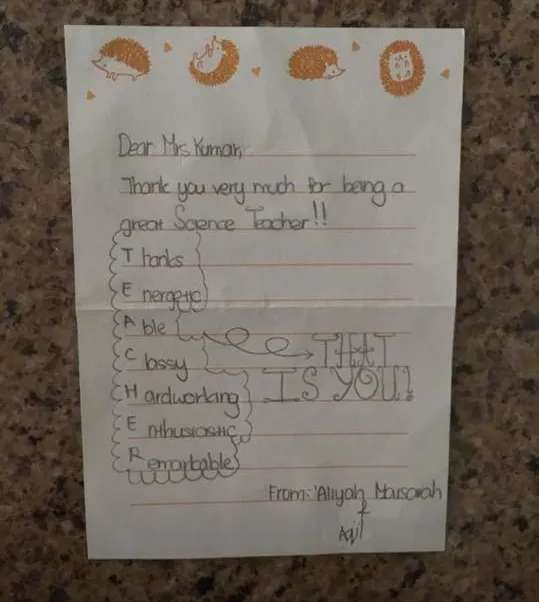 Dear Mrs Kumar,
Thank you very much for being a
great Science Teacher!!
Thanks
Energetic
Able
Classy
THAT
IS YOU!
Hardworking
Enthusiastic
Remarkable
From: 'Aliyah Marsorah
+
Aqil